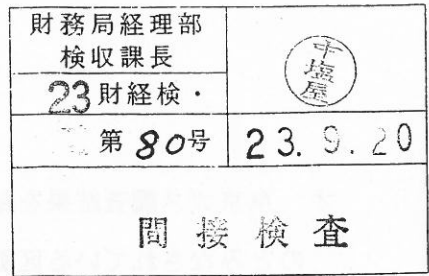 財務局経理部
検収課長
23財経検・
第80号
塩屋
23.9.20
間接検査